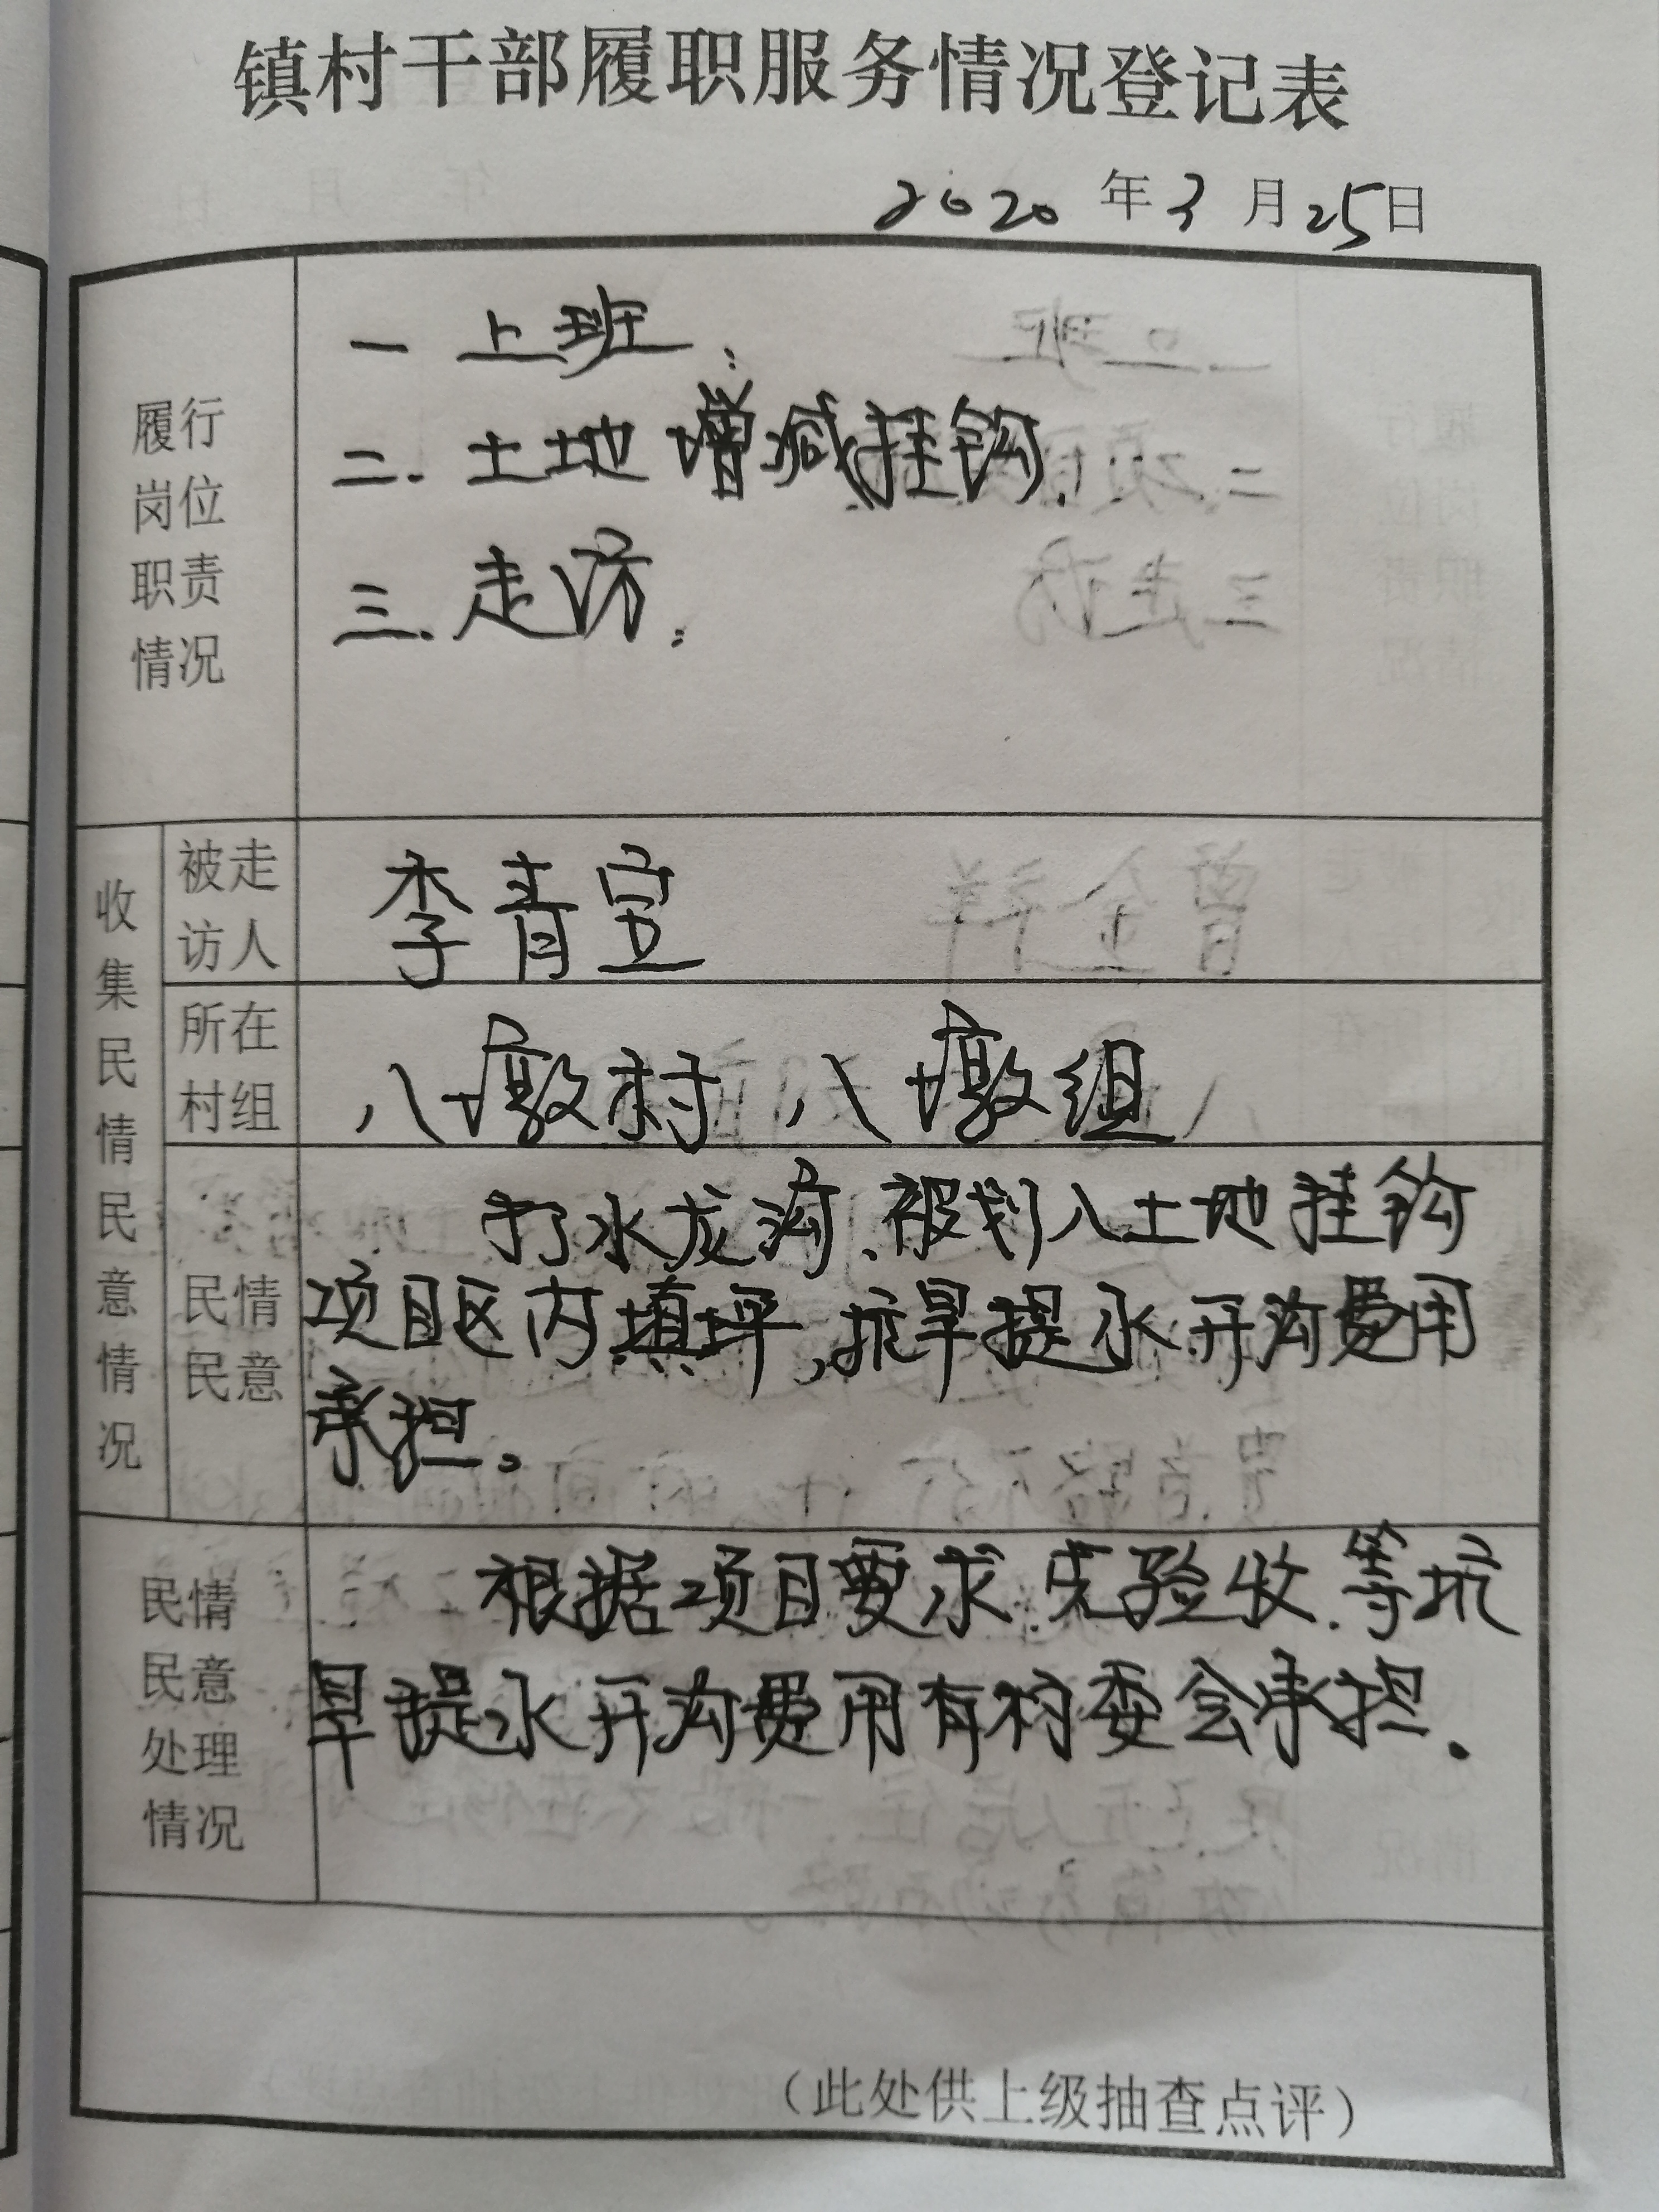 镇村干部履职服务情况登记表
2020年3月25日
履行
岗位
职责
情况
一 上班;
二.土地增减挂钩.
三.走访;
收集民情民意情况
被走
访人
李青宣
所在
村组
八墩村 八墩组
民情
民意
打水龙沟.被划入土地挂钩
项目区内填坪,抗旱提水开沟费用
承担。
民情
民意
处理
情况
根据项目要求.先验收.等抗
旱提水开沟费用有村委会承担.
(此处供上级抽查点评)